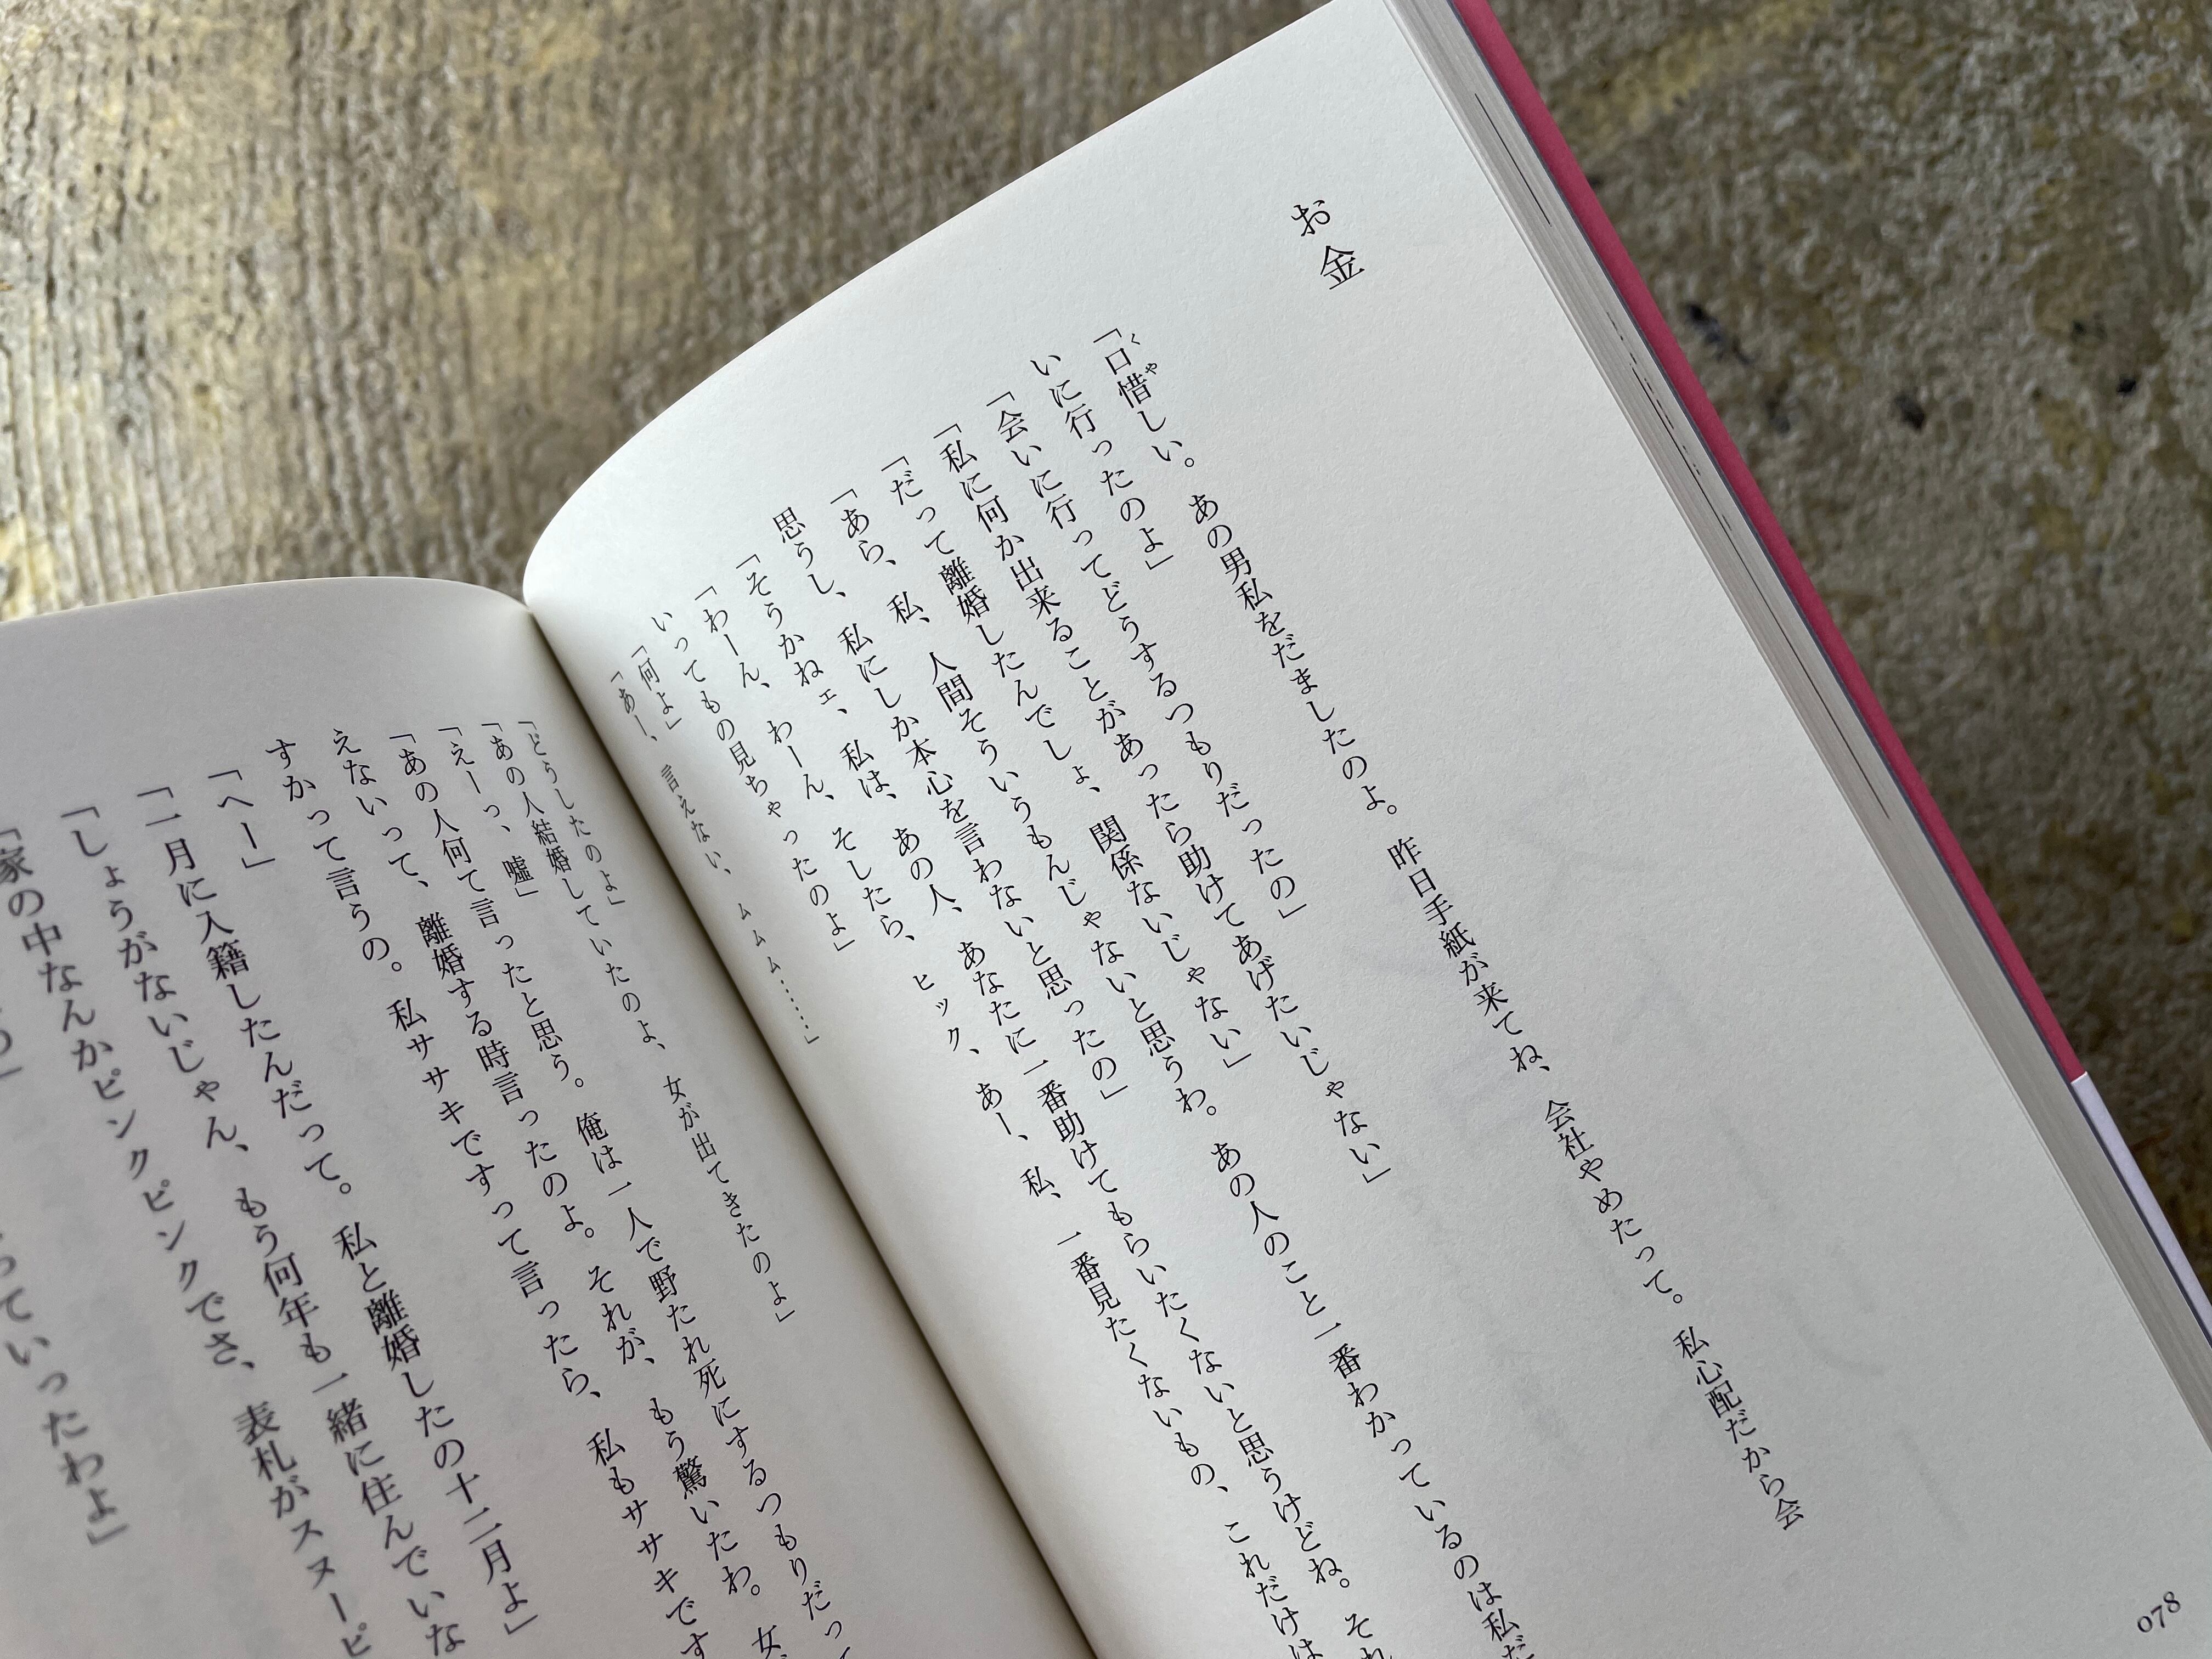 お金
「口惜しい。あの男私をだましたのよ。昨日手紙が来てね、会社やめたって。私心配だから会
いに行ったのよ」
「会いに行ってどうするつもりだったの」
「私に何か出来ることがあったら助けてあげたいじゃない」
「だって離婚したんでしょ、関係ないじゃない」
「あら、私、人間そういうもんじゃないと思うわ。あの人のこと一番わかっているのは私だ
思うし、私にしか本心を言わないと思ったの」
「そうかねェ、私は、あの人、あなたに一番助けてもらいたくないと思うけどね。それ
「わーん、わーん、そしたら、ヒック、あー、私、一番見たくないもの、これだけは
いってもの見ちゃったのよ」
「何よ」
「あー、言えない、ムムム……」
078
「どうしたのよ」
「あの人結婚していたのよ、女が出てきたのよ」
「えーっ、嘘」
「あの人何て言ったと思う。俺は一人で野たれ死にするつもりだって
えないって、離婚する時言ったのよ。それが、もう驚いたわ。女
すかって言うの。私ササキですって言ったら、私もササキです
「へー」
「一月に入籍したんだって。私と離婚したの十二月よ」
「しょうがないじゃん、もう何年も一緒に住んでいな
「家の中なんかピンクピンクでさ、表札がスヌーピ
っていったわよ」